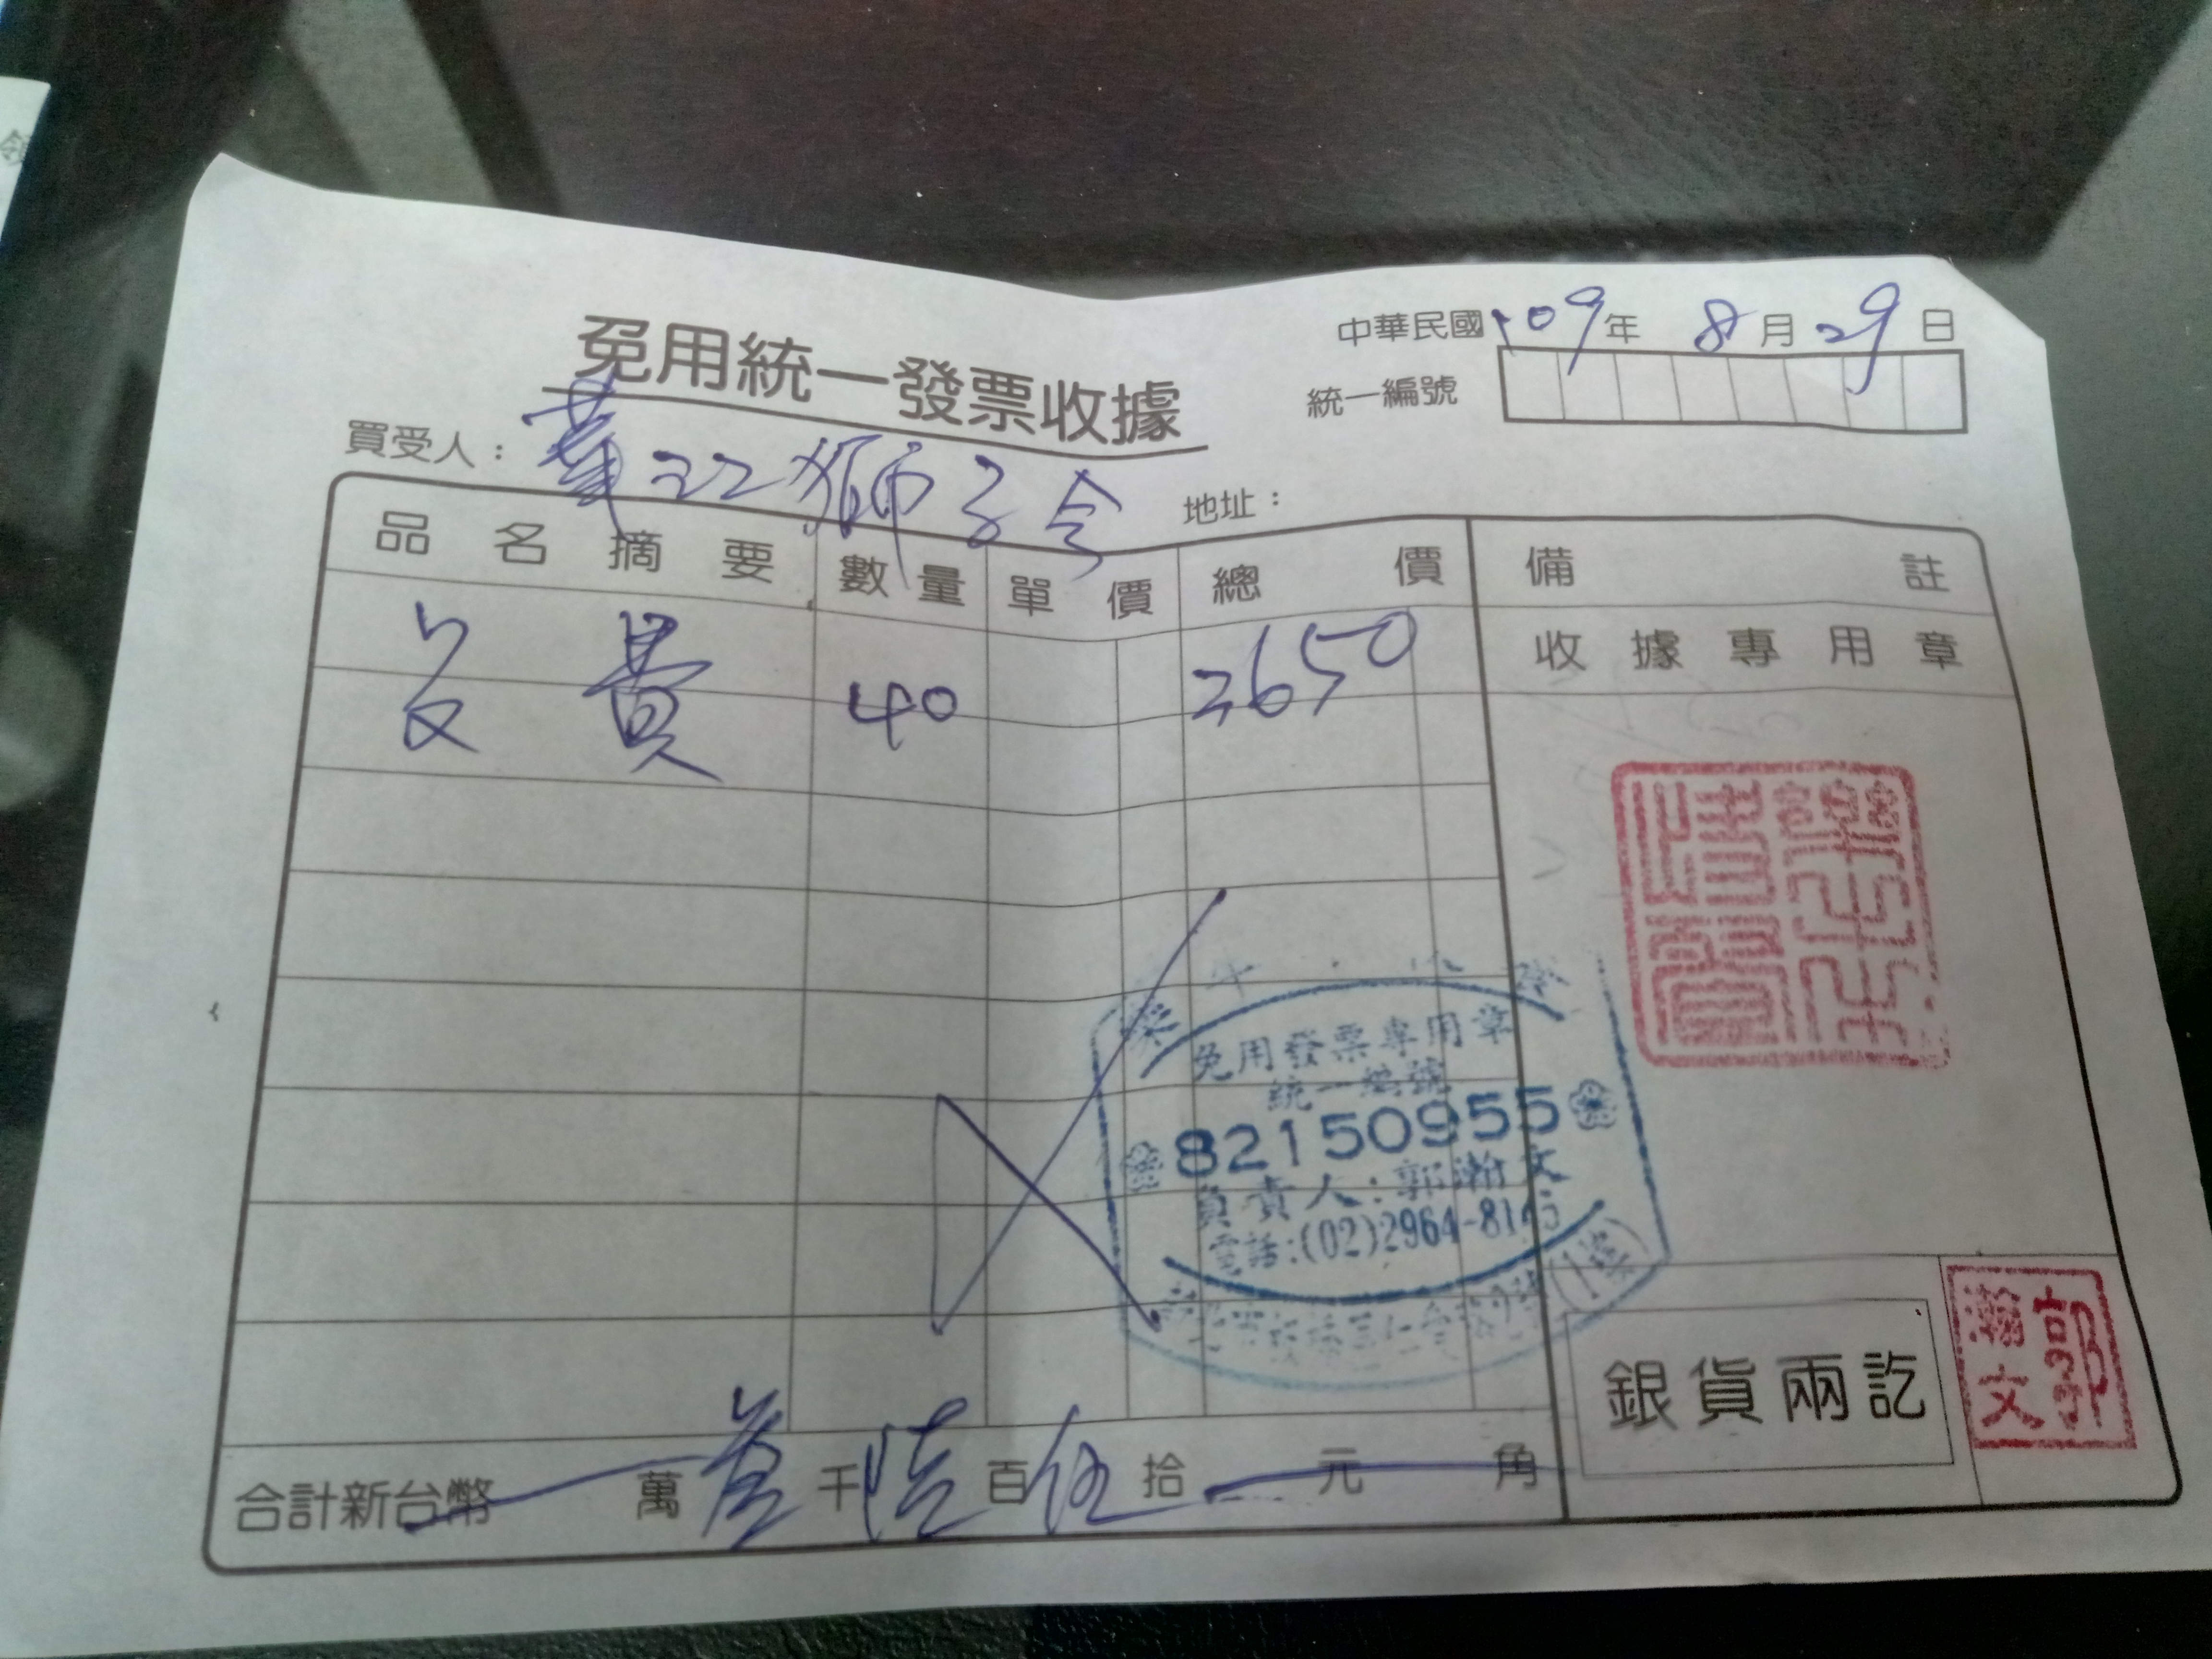 中華民國109年 8月29日
免用統一發票收據
統一編號
買受人：華江獅子会
地址：
品名摘要 數量 單價 總價 備註
餐費 40 2650
收據專用章
免用發票專用章
統一編號
82150955
負責人：郭瀚文
電話:(02)2964-81
(1樓)
郭瀚文
銀貨兩訖
合計新台幣 萬 千陸百伍拾 元 角